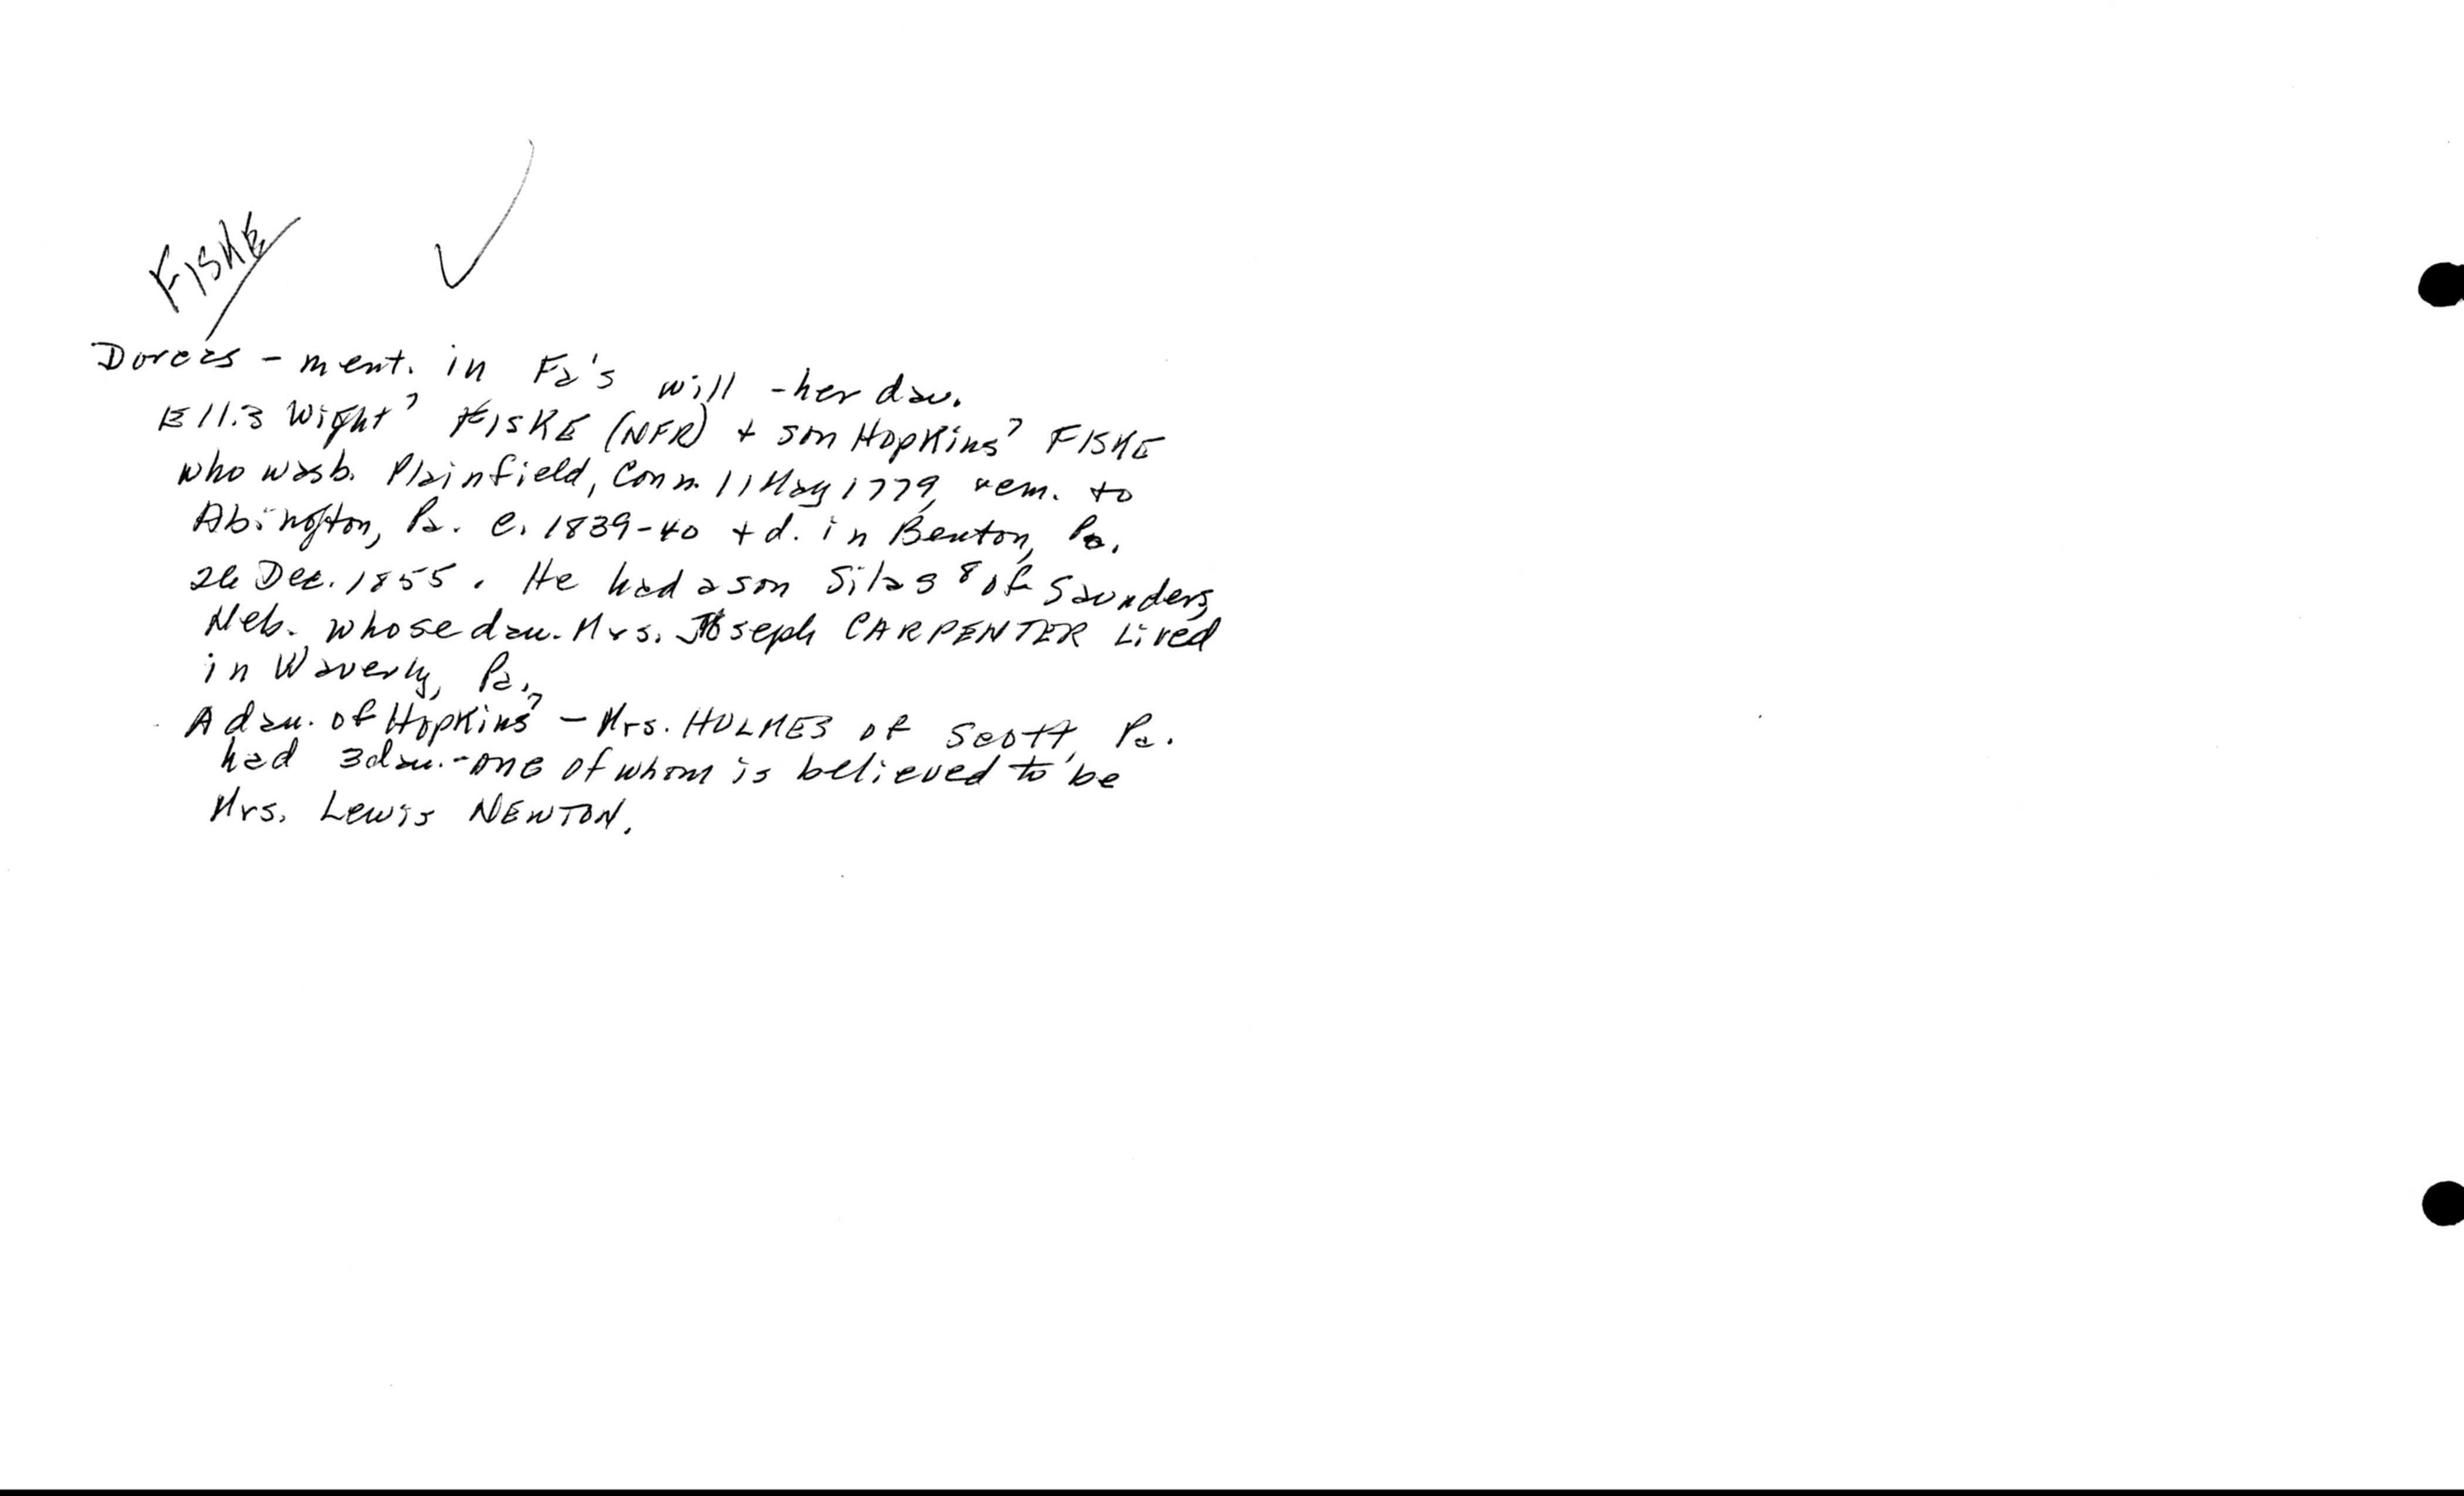 FISKE
Dorcas - ment. in Fa's will - her dau.
Eliz Wight⁷ FISKE (NFR) + son Hopkins⁷ FISKE
who was b. Plainfield, Conn. 11 May 1779, rem. to
Abington, Pa. c. 1839-40 + d. in Benton, Pa.
26 Dec. 1855. He had a son Silas⁸ of Saunders,
Neb. whose dau. Mrs. Joseph CARPENTER Lived
in Waverly, Pa.
A dau. of Hopkins⁷ - Mrs. HOLMES of Scott, Pa.
had 3 dau. - one of whom is believed to be
Mrs. Lewis NEWTON.